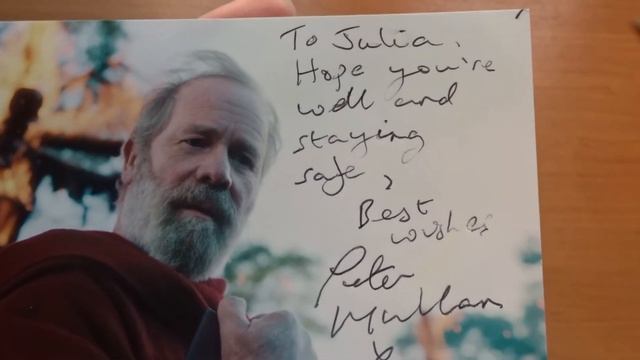 To Julia,
Hope you're
well and
staying
safe,
Best
wishes
Peter
Mullan
x